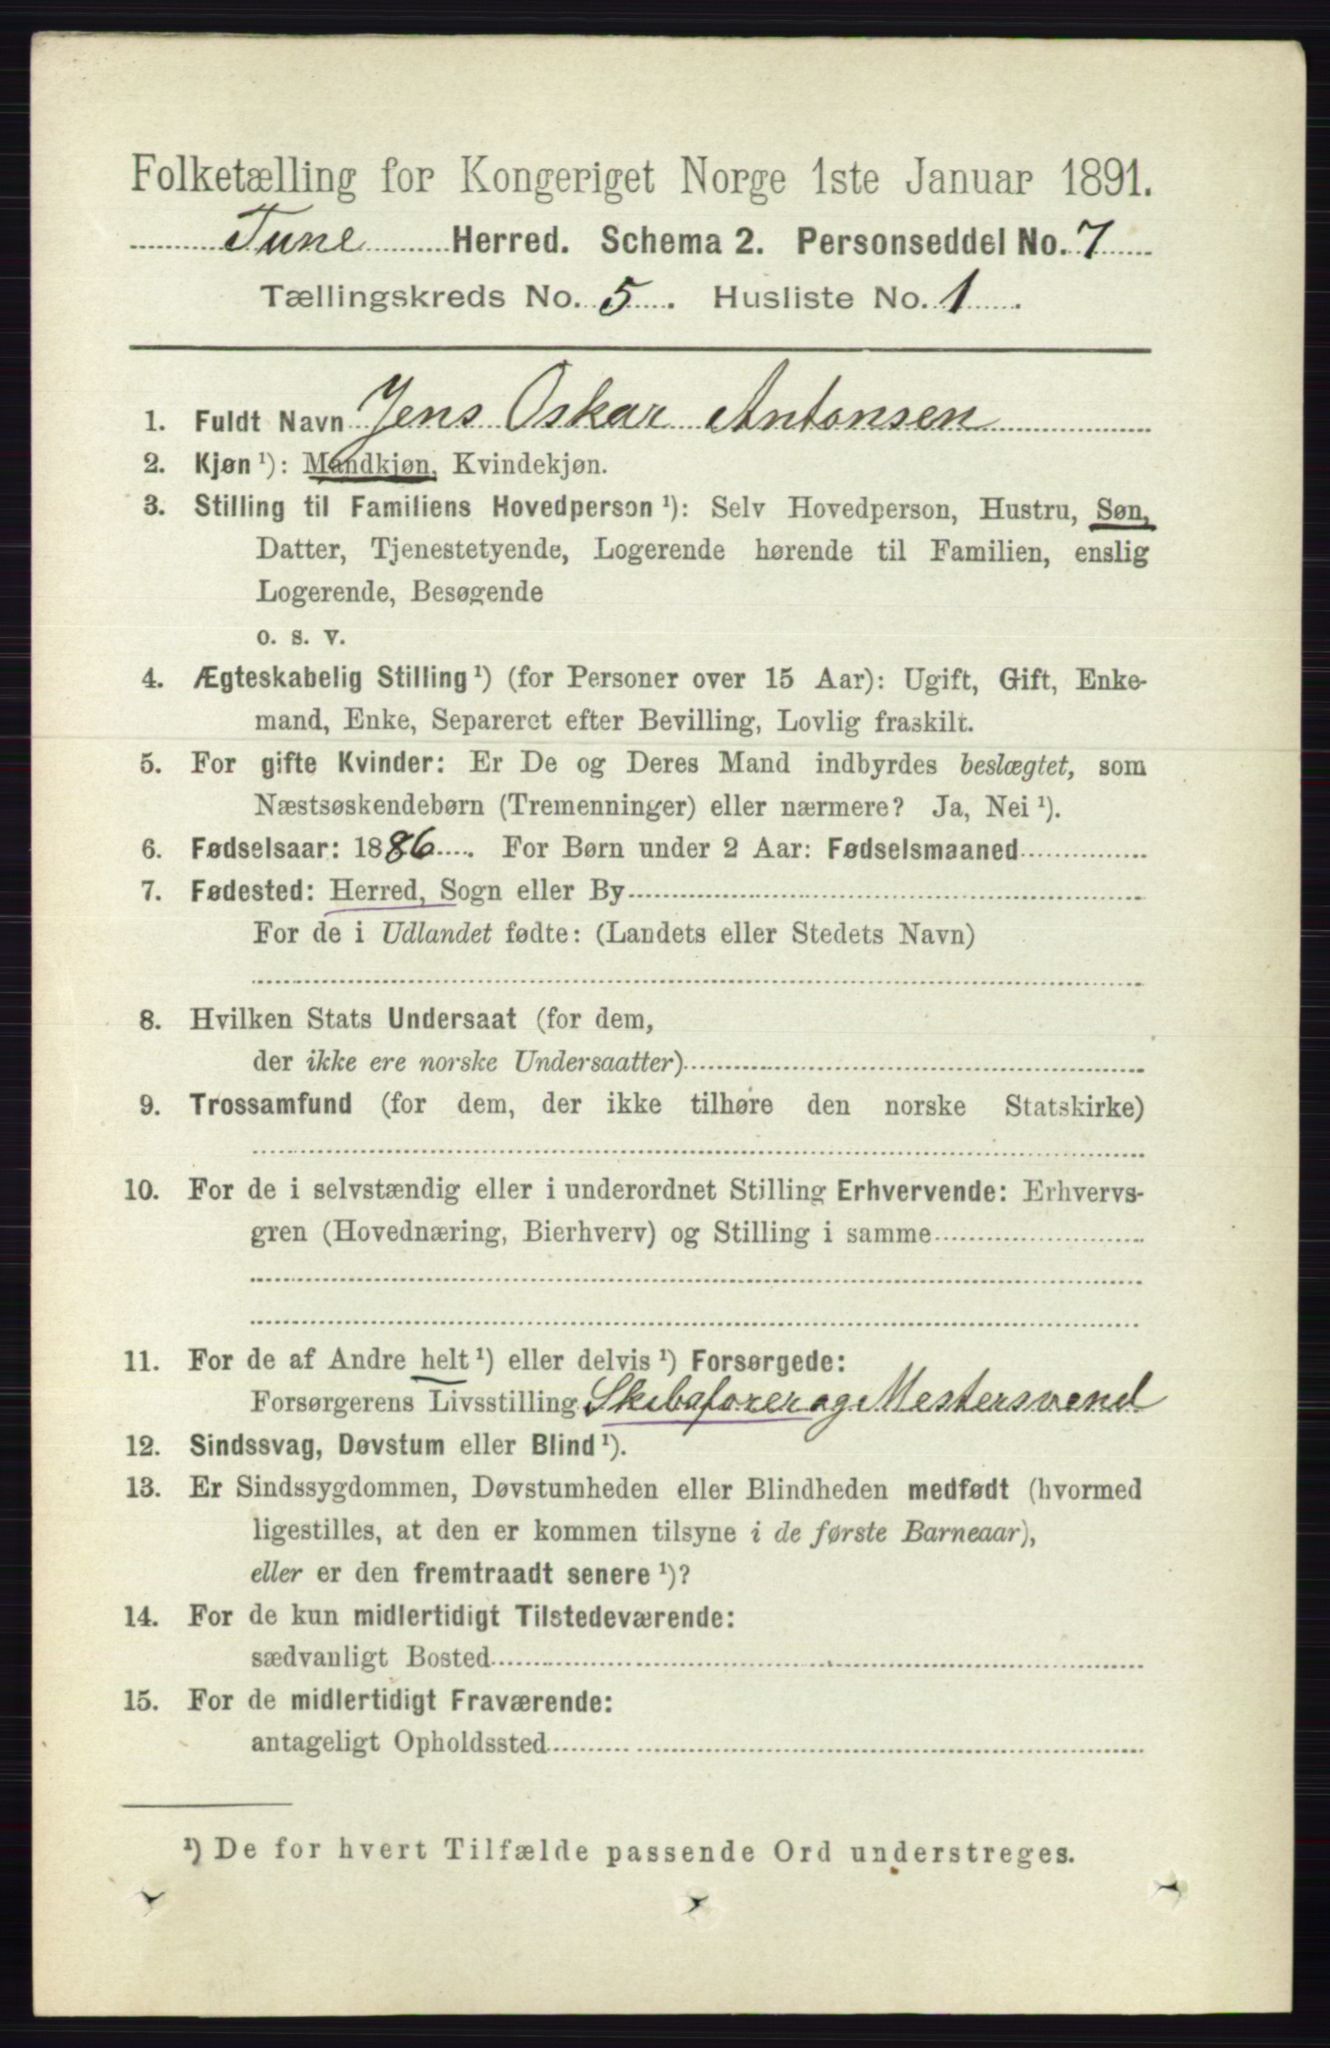 Folketælling for Kongeriget Norge 1ste Januar 1891.
Tune Herred. Schema 2. Personseddel No. 7
Tællingskreds No. 5. Husliste No. 1.
1. Fuldt Navn Jens Oskar Antonsen
2. Kjøn¹): Mandkjøn, Kvindekjøn.
3. Stilling til Familiens Hovedperson¹): Selv Hovedperson, Hustru, Søn,
Datter, Tjenestetyende, Logerende hørende til Familien, enslig
Logerende, Besøgende
o. s. v.
4. Ægteskabelig Stilling¹) (for Personer over 15 Aar): Ugift, Gift, Enke-
mand, Enke, Separeret efter Bevilling, Lovlig fraskilt.
5. For gifte Kvinder: Er De og Deres Mand indbyrdes beslægtet, som
Næstsøskendebørn (Tremenninger) eller nærmere? Ja, Nei¹).
6. Fødselsaar: 1886. For Børn under 2 Aar: Fødselsmaaned
7. Fødested: Herred, Sogn eller By
For de i Udlandet fødte: (Landets eller Stedets Navn)
8. Hvilken Stats Undersaat (for dem,
der ikke ere norske Undersaatter)
9. Trossamfund (for dem, der ikke tilhøre den norske Statskirke)
10. For de i selvstændig eller i underordnet Stilling Erhvervende: Erhvervs-
gren (Hovednæring, Bierhverv) og Stilling i samme
11. For de af Andre helt¹) eller delvis¹) Forsørgede:
Forsørgerens Livsstilling Skibsfører og Mestersvend
12. Sindssvag, Døvstum eller Blind¹).
13. Er Sindssygdommen, Døvstumheden eller Blindheden medfødt (hvormed
ligestilles, at den er kommen tilsyne i de første Barneaar),
eller er den fremtraadt senere¹)?
14. For de kun midlertidigt Tilstedeværende:
sædvanligt Bosted
15. For de midlertidigt Fraværende:
antageligt Opholdssted
¹) De for hvert Tilfælde passende Ord understreges.